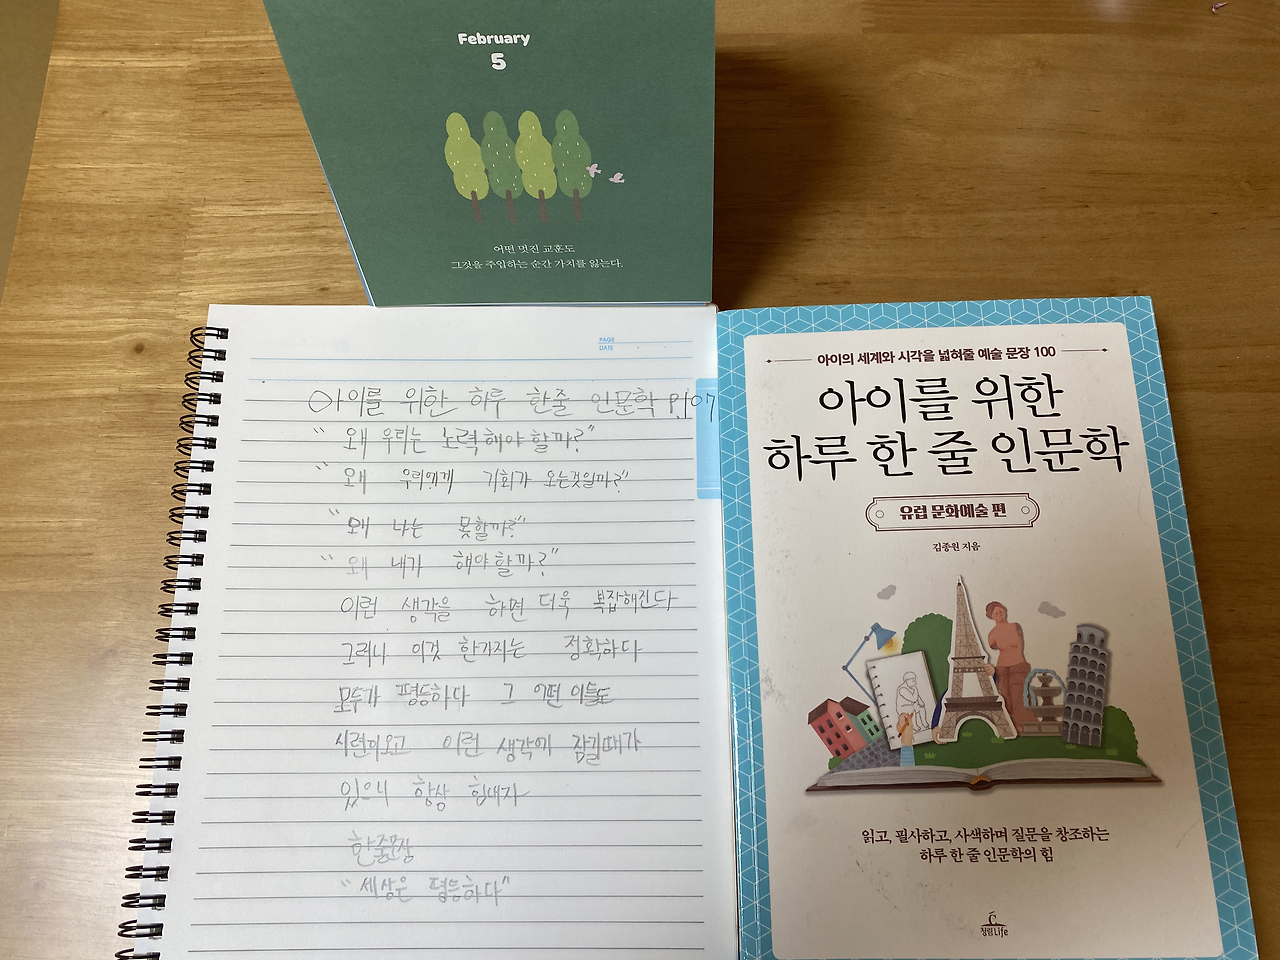 February
5
어떤 멋진 교훈도
그것을 주입하는 순간 가치를 잃는다.
PAGE
DATE
아이를 위한 하루 한줄 인문학 P.107
“왜 우리는 노력해야 할까?”
“왜 우리에게 기회가 오는것일까?”
“왜 나는 못할까?”
“왜 내가 해야 할까?”
이런 생각을 하면 더욱 복잡해진다
그러니 이것 한가지는 정확하다
모두가 평등하다 그 어떤 이들도
시련이오고 이런 생각에 잠길때가
있으니 항상 힘내자
한줄문장
“세상은 평등하다”
아이의 세계와 시각을 넓혀줄 예술 문장 100
아이를 위한
하루 한 줄 인문학
유럽 문화예술 편
김종원 지음
읽고, 필사하고, 사색하며 질문을 창조하는
하루 한 줄 인문학의 힘
청림Life